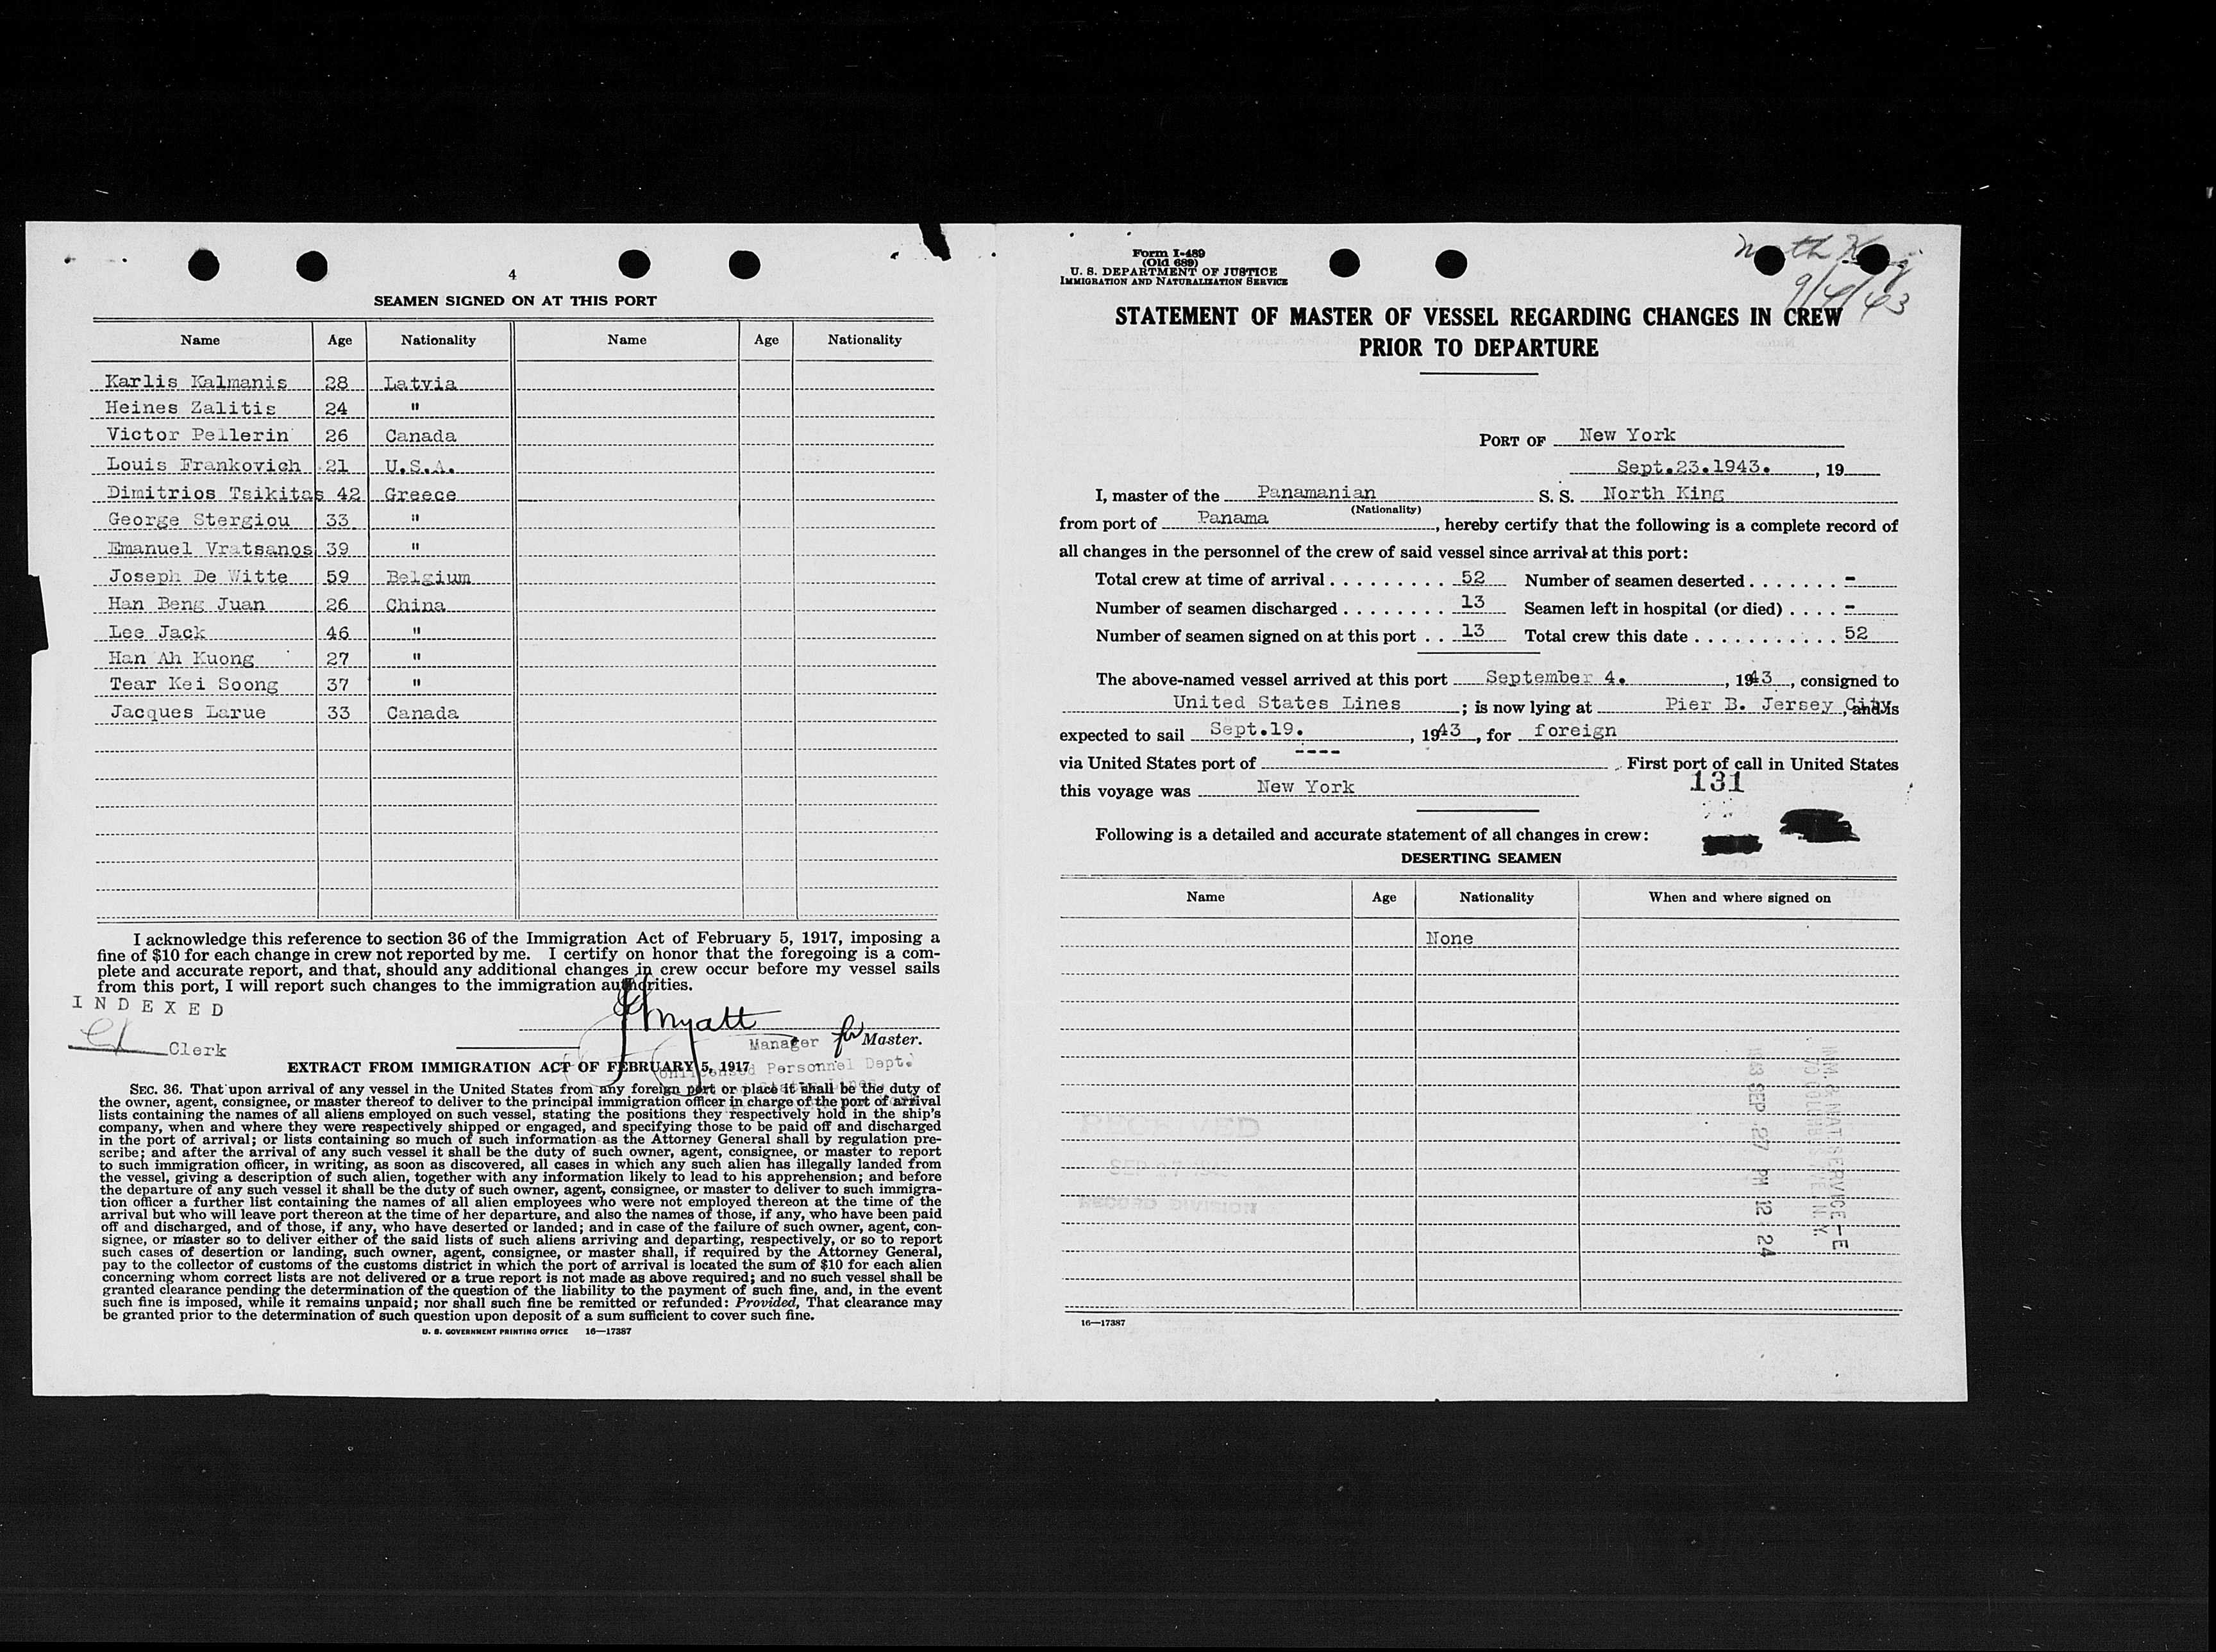 4
SEAMEN SIGNED ON AT THIS PORT
Name Age Nationality Name Age Nationality
Karlis Kalmanis 28 Latvia
Heines Zalitis 24 "
Victor Pellerin 26 Canada
Louis Frankovich 21 U.S.A.
Dimitrios Tsikitas 42 Greece
George Stergiou 33 "
Emanuel Vratsanos 39 "
Joseph De Witte 59 Belgium
Han Beng Juan 26 China
Lee Jack 46 "
Han Ah Kuong 27 "
Tear Kei Soong 37 "
Jacques Larue 33 Canada
I acknowledge this reference to section 36 of the Immigration Act of February 5, 1917, imposing a
fine of $10 for each change in crew not reported by me. I certify on honor that the foregoing is a com-
plete and accurate report, and that, should any additional changes in crew occur before my vessel sails
from this port, I will report such changes to the immigration authorities.
INDEXED
Myatt
Manager for Master.
Clerk
Personnel Dept.
EXTRACT FROM IMMIGRATION ACT OF FEBRUARY 5, 1917
SEC. 36. That upon arrival of any vessel in the United States from any foreign port or place it shall be the duty of
the owner, agent, consignee, or master thereof to deliver to the principal immigration officer in charge of the port of arrival
lists containing the names of all aliens employed on such vessel, stating the positions they respectively hold in the ship's
company, when and where they were respectively shipped or engaged, and specifying those to be paid off and discharged
in the port of arrival; or lists containing so much of such information as the Attorney General shall by regulation pre-
scribe; and after the arrival of any such vessel it shall be the duty of such owner, agent, consignee, or master to report
to such immigration officer, in writing, as soon as discovered, all cases in which any such alien has illegally landed from
the vessel, giving a description of such alien, together with any information likely to lead to his apprehension; and before
the departure of any such vessel it shall be the duty of such owner, agent, consignee, or master to deliver to such immigra-
tion officer a further list containing the names of all alien employees who were not employed thereon at the time of the
arrival but who will leave port thereon at the time of her departure, and also the names of those, if any, who have been paid
off and discharged, and of those, if any, who have deserted or landed; and in case of the failure of such owner, agent, con-
signee, or master so to deliver either of the said lists of such aliens arriving and departing, respectively, or so to report
such cases of desertion or landing, such owner, agent, consignee, or master shall, if required by the Attorney General,
pay to the collector of customs of the customs district in which the port of arrival is located the sum of $10 for each alien
concerning whom correct lists are not delivered or a true report is not made as above required; and no such vessel shall be
granted clearance pending the determination of the question of the liability to the payment of such fine, and, in the event
such fine is imposed, while it remains unpaid; nor shall such fine be remitted or refunded: Provided, That clearance may
be granted prior to the determination of such question upon deposit of a sum sufficient to cover such fine.
U. S. GOVERNMENT PRINTING OFFICE 16—17387
Form I-489
(Old 689)
U. S. DEPARTMENT OF JUSTICE
IMMIGRATION AND NATURALIZATION SERVICE
North King
9/4/43
STATEMENT OF MASTER OF VESSEL REGARDING CHANGES IN CREW
PRIOR TO DEPARTURE
PORT OF New York
Sept.23.1943. , 19
I, master of the Panamanian S. S. North King
(Nationality)
from port of Panama , hereby certify that the following is a complete record of
all changes in the personnel of the crew of said vessel since arrival at this port:
Total crew at time of arrival . . . . . . . . . 52 Number of seamen deserted . . . . . . . -
Number of seamen discharged . . . . . . . . 13 Seamen left in hospital (or died) . . . . -
Number of seamen signed on at this port . . 13 Total crew this date . . . . . . . . . . . 52
The above-named vessel arrived at this port September 4. , 1943 , consigned to
United States Lines ; is now lying at Pier B. Jersey City , and is
expected to sail Sept.19. , 1943 , for foreign
via United States port of ---- . First port of call in United States
this voyage was New York
131
Following is a detailed and accurate statement of all changes in crew:
DESERTING SEAMEN
Name Age Nationality When and where signed on
None
RECEIVED
RECORD DIVISION
1943 SEP 27 PM 12 24
16—17387